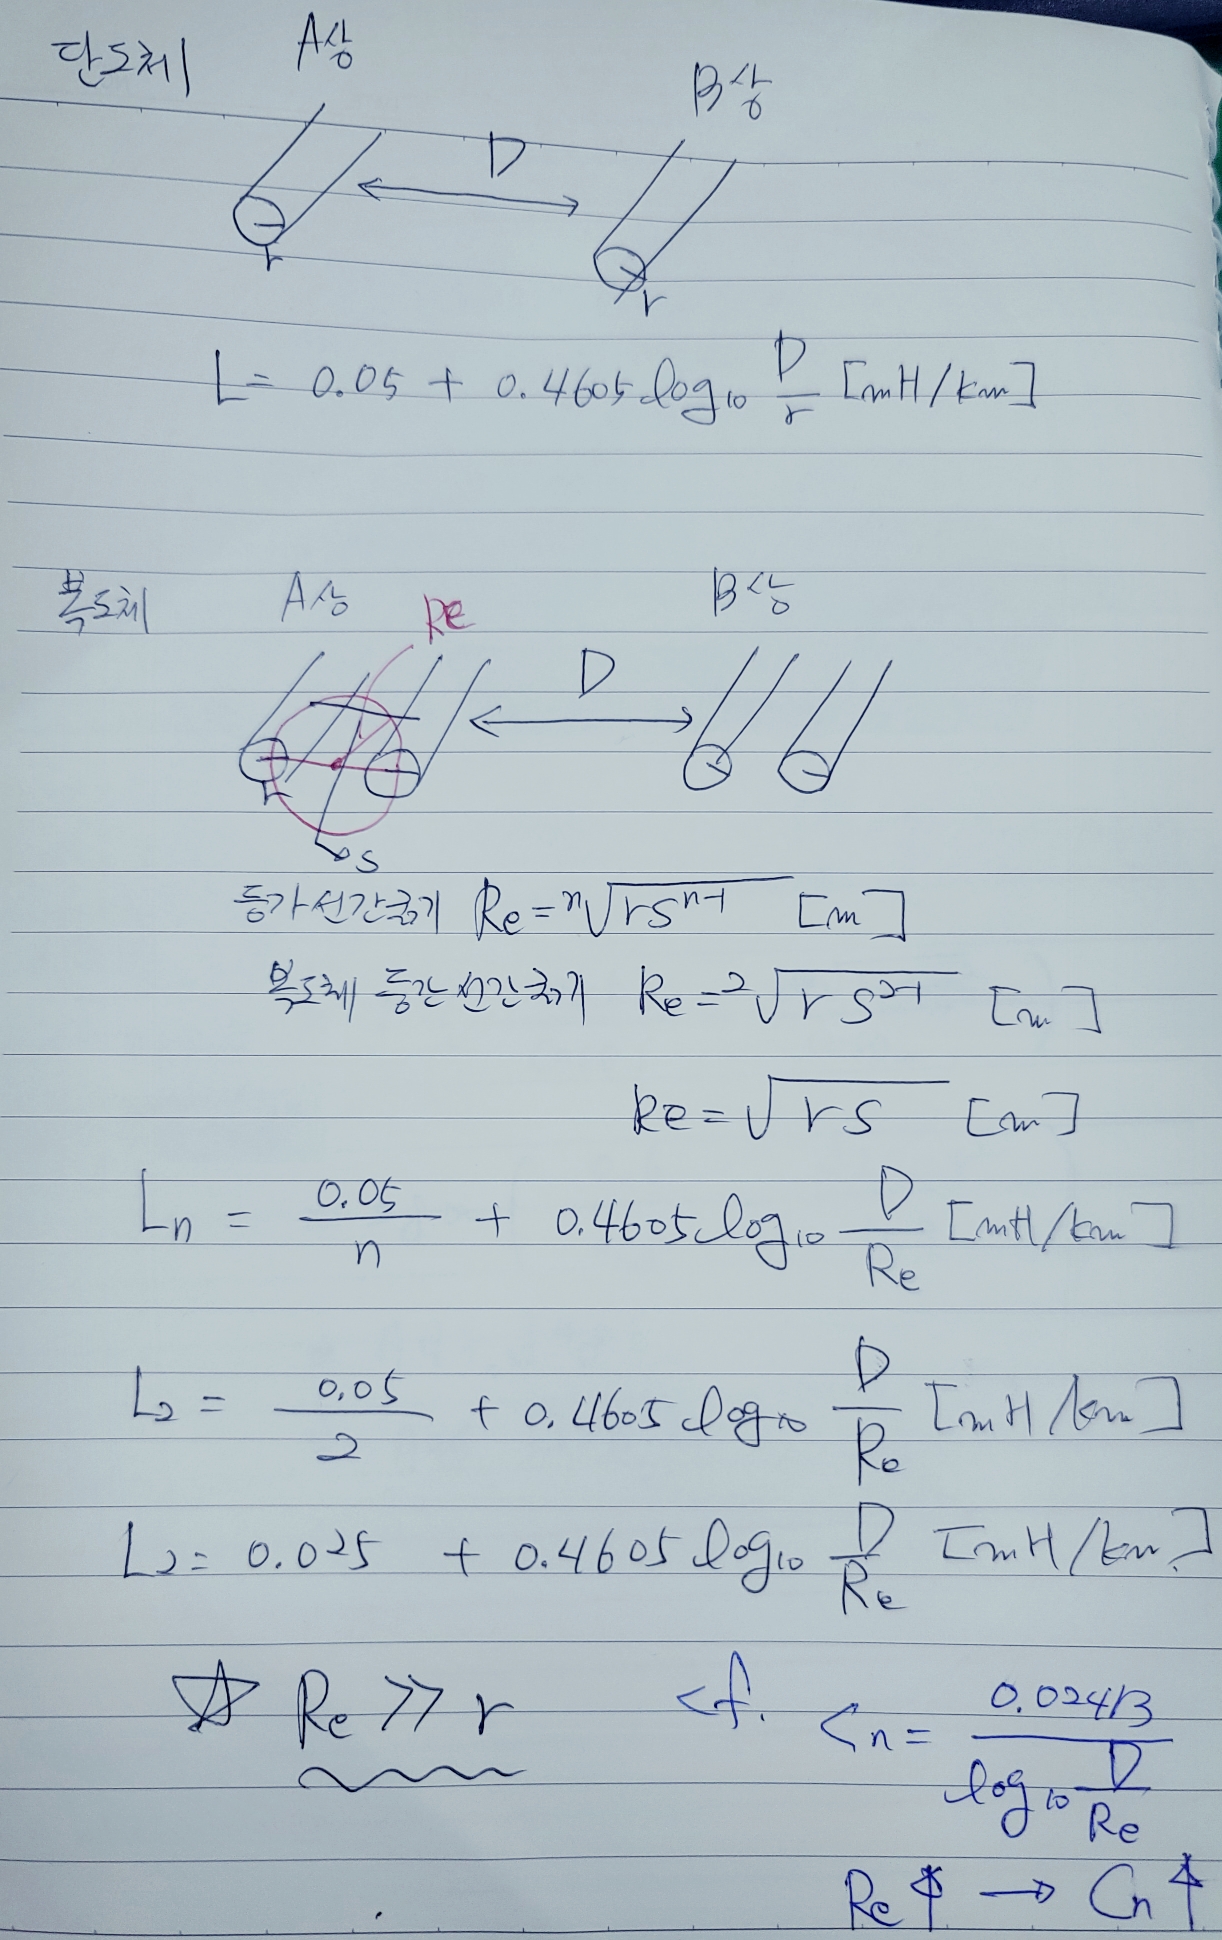 단도체 A상 B상
D
r r
L = 0.05 + 0.4605 log₁₀ D/r [mH/km]
복도체 A상 Re B상
D
r
s
등가선간굵기 Re = ⁿ√(rsⁿ⁻¹) [m]
복도체 등간선간굵기 Re = ²√(rs²⁻¹) [m]
Re = √(rs) [m]
Lₙ = 0.05/n + 0.4605 log₁₀ D/Re [mH/km]
L₂ = 0.05/2 + 0.4605 log₁₀ D/Re [mH/km]
L₂ = 0.025 + 0.4605 log₁₀ D/Re [mH/km]
☆ Re >> r cf. Cₙ = 0.02413/(log₁₀ D/Re)
Re ↑ → Cn ↑